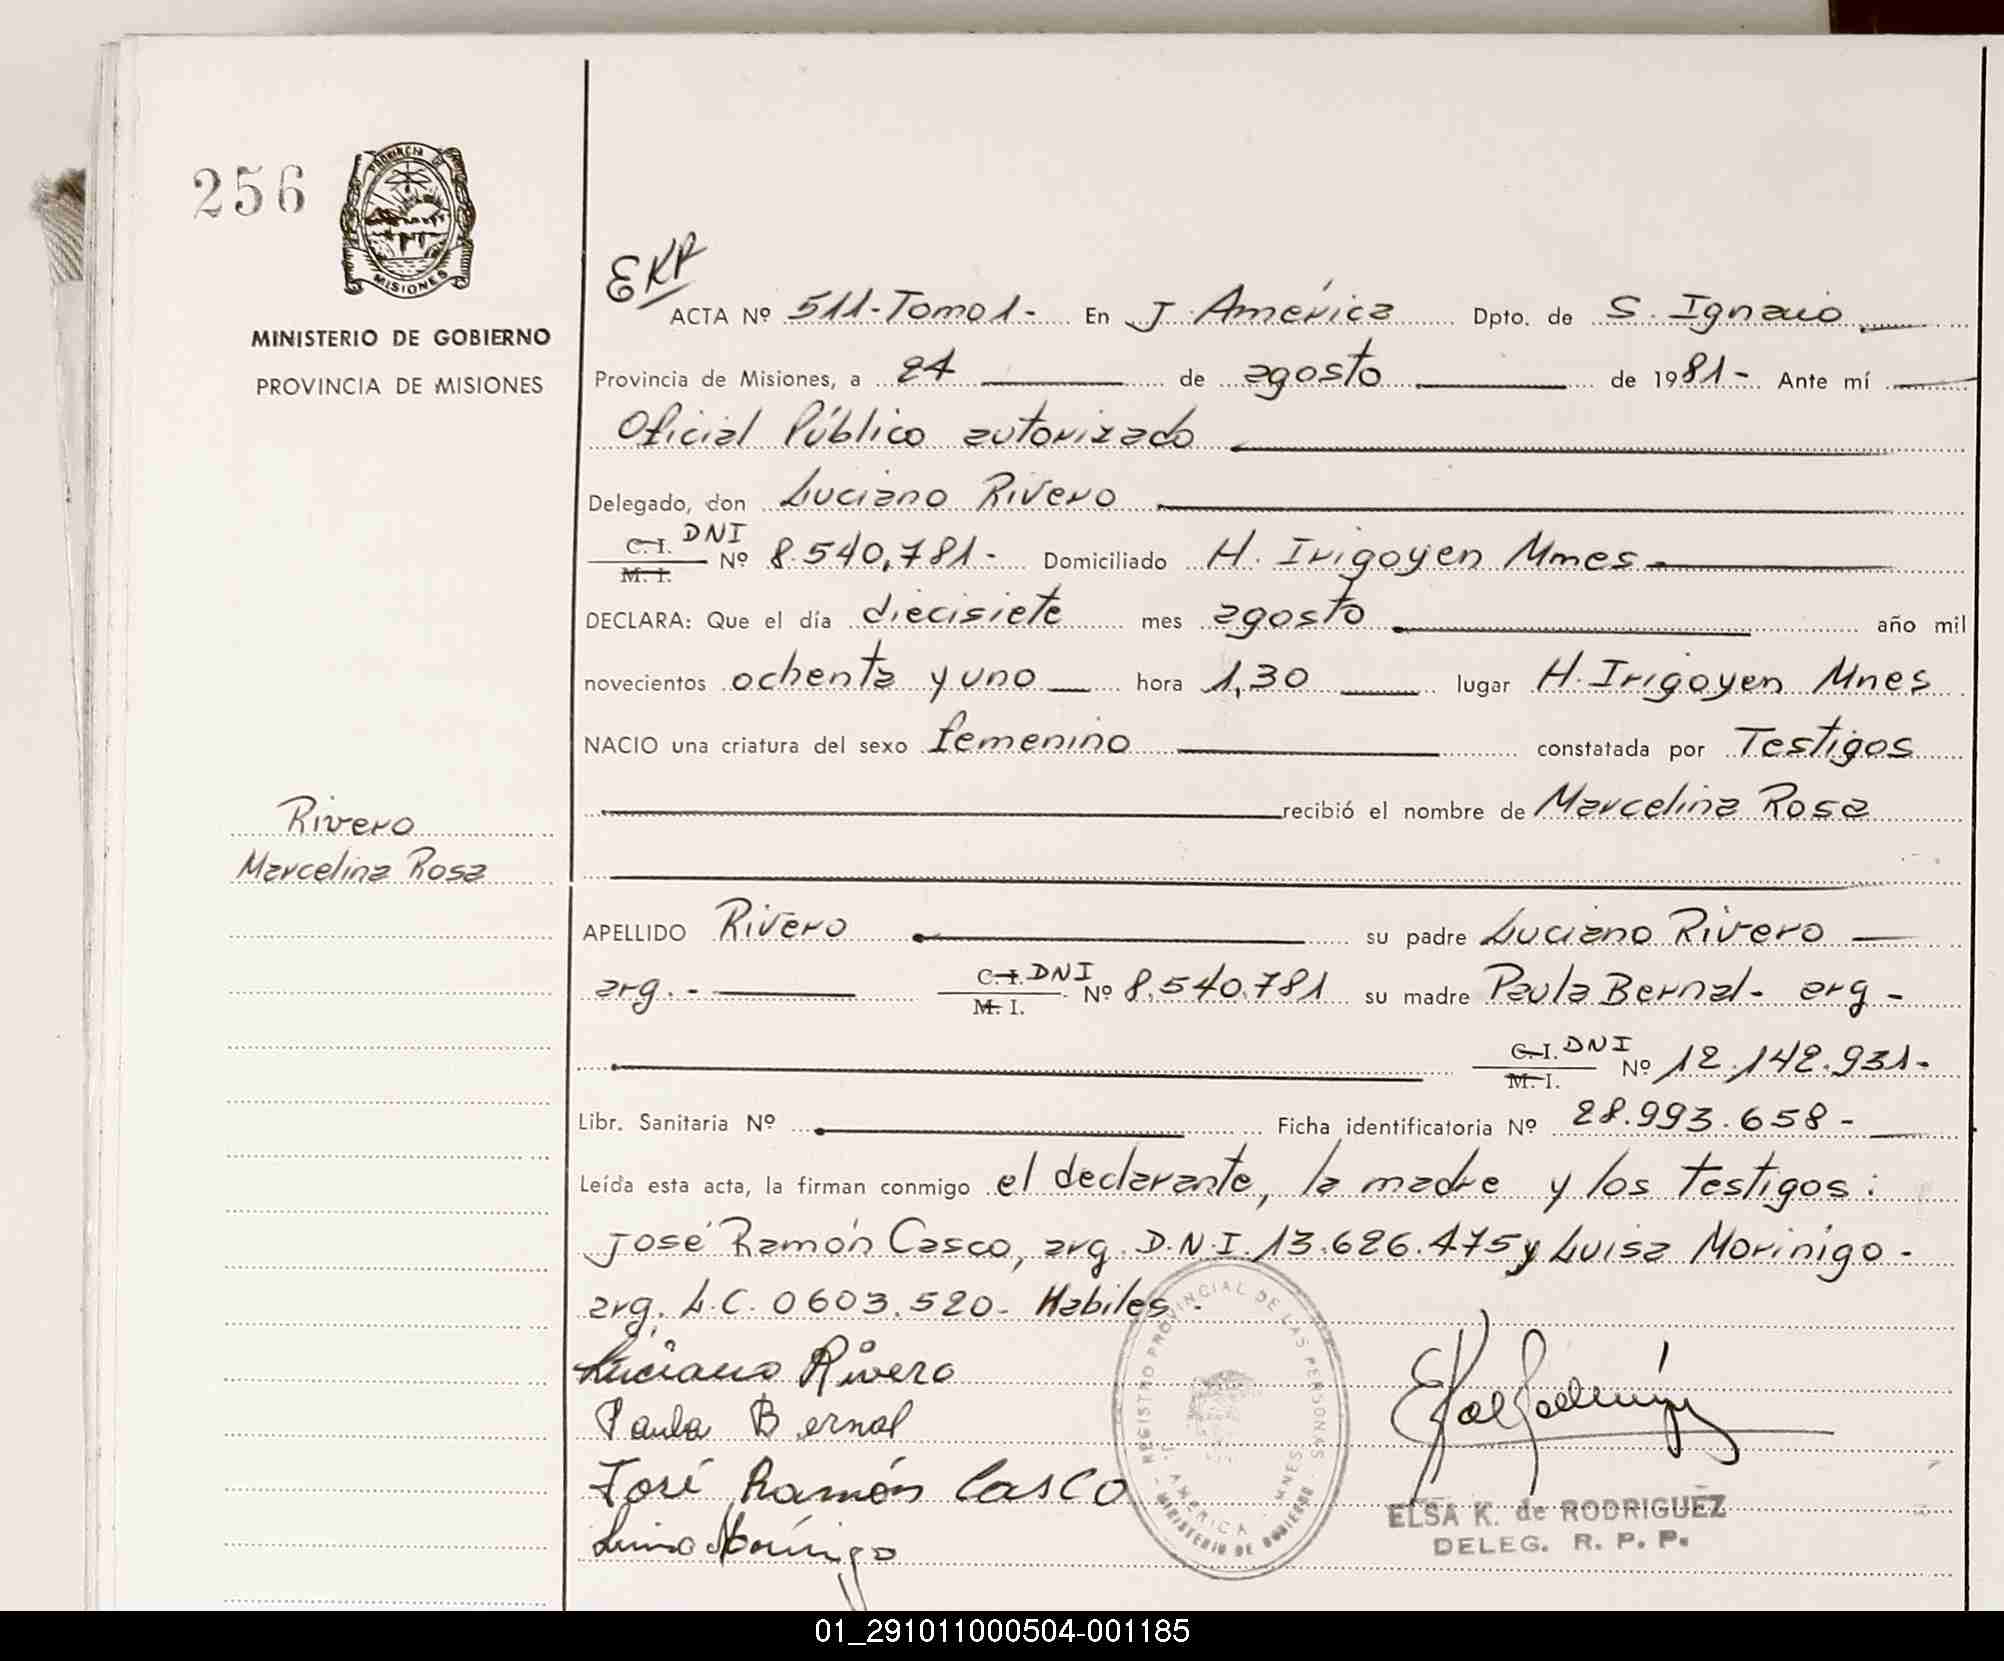 256
PROVINCIA DE
MISIONES
MINISTERIO DE GOBIERNO
PROVINCIA DE MISIONES
EKR
ACTA Nº 511-Tomo 1- En J. América Dpto. de S. Ignacio
Provincia de Misiones, a 24 de agosto de 1981- Ante mí
Oficial Público autorizado
Delegado, don Luciano Rivero
C. I. DNI
M. I. Nº 8.540.781- Domiciliado H. Irigoyen Mnes
DECLARA: Que el día diecisiete mes agosto año mil
novecientos ochenta y uno hora 1,30 lugar H. Irigoyen Mnes
NACIO una criatura del sexo femenino constatada por Testigos
recibió el nombre de Marcelina Rosa
Rivero
Marcelina Rosa
APELLIDO Rivero su padre Luciano Rivero
arg.- C. I. DNI
M. I. Nº 8.540.781 su madre Paula Bernal- arg-
C. I. DNI
M. I. Nº 12.142.931-
Libr. Sanitaria Nº Ficha identificatoria Nº 28.993.658-
Leída esta acta, la firman conmigo el declarante, la madre y los testigos:
José Ramón Casco, arg. D.N.I. 13.626.475 y Luisa Morinigo-
arg. L.C. 0603.520- Habiles.-
Luciano Rivero
Paula Bernal
José Ramón Casco
Morínigo
REGISTRO PROVINCIAL DE LAS PERSONAS
J. AMERICA - MNES.
MINISTERIO DE GOBIERNO
ELSA K. de RODRIGUEZ
DELEG. R. P. P.
01_291011000504-001185